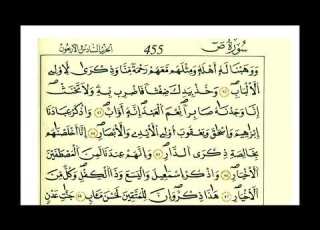 سُورَةُ صٓ 455 الحزب السادس الأربعون
وَوَهَبْنَا لَهُۥٓ أَهْلَهُۥ وَمِثْلَهُم مَّعَهُمْ رَحْمَةً مِّنَّا وَذِكْرَىٰ لِأُوْلِى
ٱلْأَلْبَٰبِ وَخُذْ بِيَدِكَ ضِغْثًا فَٱضْرِب بِّهِۦ وَلَا تَحْنَثْ
إِنَّا وَجَدْنَٰهُ صَابِرًا نِّعْمَ ٱلْعَبْدُ إِنَّهُۥٓ أَوَّابٌ وَٱذْكُرْ عِبَٰدَنَآ
إِبْرَٰهِيمَ وَإِسْحَٰقَ وَيَعْقُوبَ أُوْلِى ٱلْأَيْدِى وَٱلْأَبْصَٰرِ إِنَّآ أَخْلَصْنَٰهُم
بِخَالِصَةٍ ذِكْرَى ٱلدَّارِ وَإِنَّهُمْ عِندَنَا لَمِنَ ٱلْمُصْطَفَيْنَ
ٱلْأَخْيَارِ وَٱذْكُرْ إِسْمَٰعِيلَ وَٱلْيَسَعَ وَذَا ٱلْكِفْلِ وَكُلٌّ مِّنَ
ٱلْأَخْيَارِ هَٰذَا ذِكْرٌ وَإِنَّ لِلْمُتَّقِينَ لَحُسْنَ مَـَٔابٍ جَنَّٰتِ عَدْنٍ